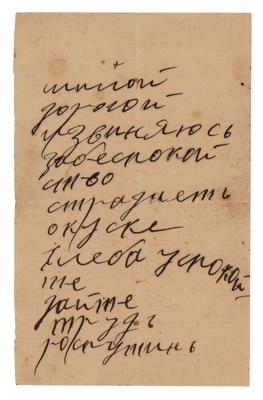 милой
дорогой
извиняюсь
забеспокой
ство
страдаеть
окуске
хлеба успокой
те
дайте
трудъ
роспутинь